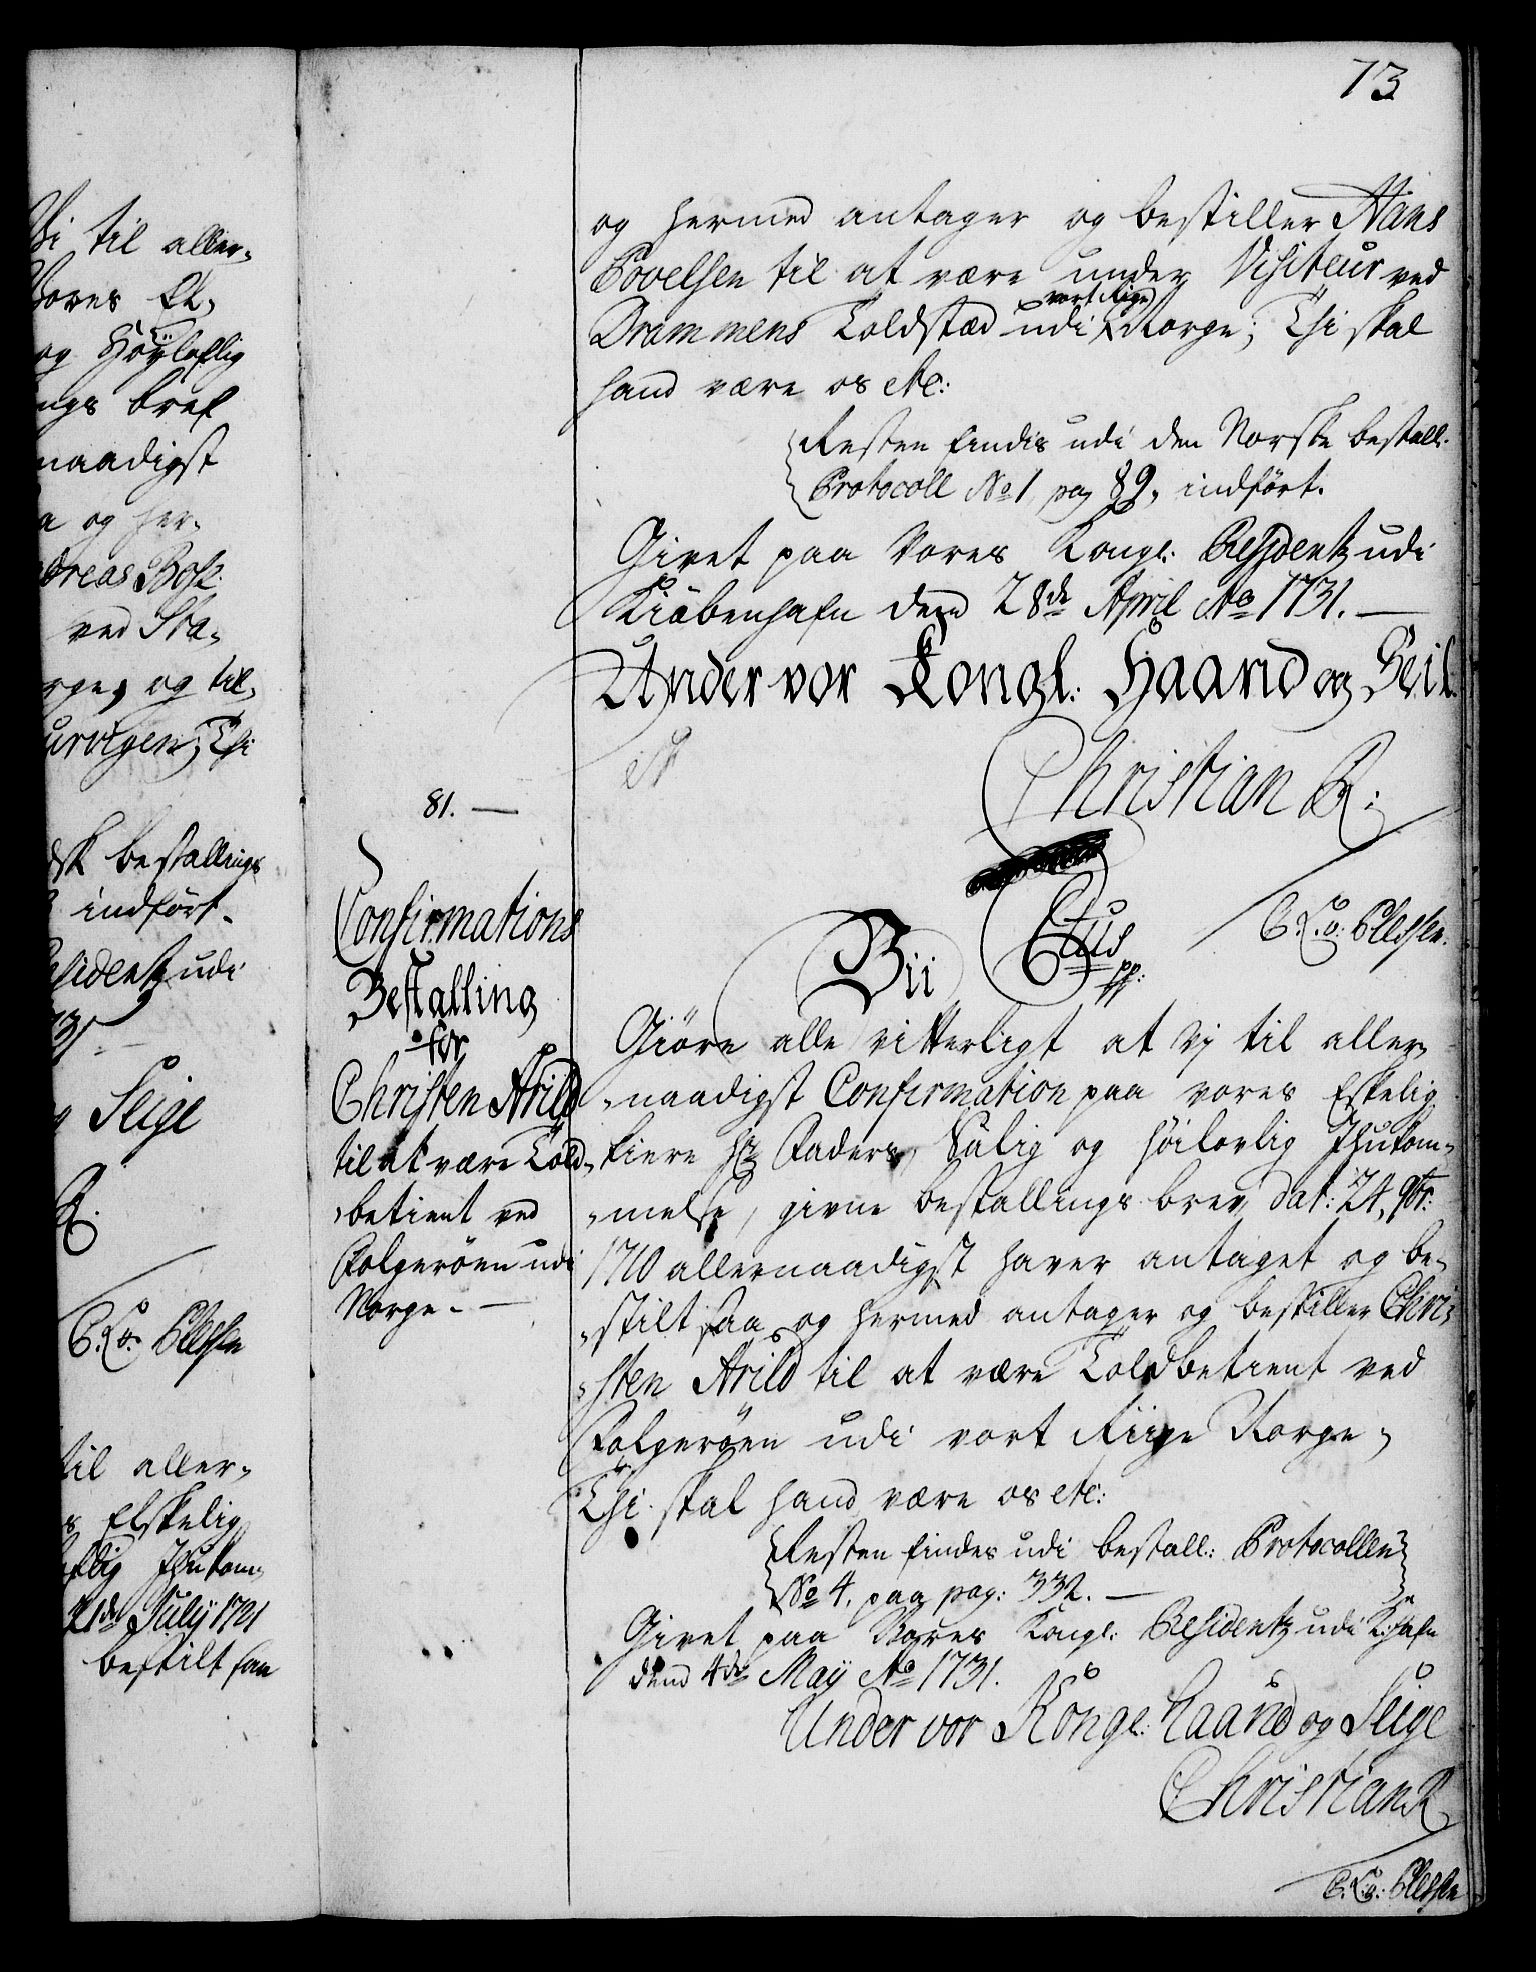 73
Vi til aller,
Vores El,
og Höÿloflig
ngs bref
naadigst
a og her,
dreas Bosz
ved Sta,
rge, og til,
urvigen; Thi
dsk bestallings
indført.
esidentz udi
731
Seige
R.
C. A. v. Plessen
til aller,
s Elskelig
oflig Ihukom,
21de Julÿ 1721
bestilt saa
og hermed antager og bestiller Hans
Povelsen til at være under Visiteur ved
vort Rige
Drammens Toldstæd udi Norge; Thi skal
hand være os etc:
Resten findis udi den Norske bestall.
Protocoll No 1, pag 89, indført.
Givet paa Vores Kongl: Residentz udi
Kiøbenhafn dend 28de April Ao 1731. —
Under vor Kongl: Haand og Seil.
Christian R:
C. A. v. Plessen.
81. —
Confirmations
Bestalling
for
Christen Arild
til at være Told-
betient ved
Folgerøen udi
Norge. —
Vii Ctus
pp:
Giöre alle vitterligt at Vj til aller,
naadigst Confirmation paa vores Elskelig
kiere Hr Faders, Salig og höilovlig Ihukom,
melse, givne bestallings brev, dat: 24, 9br:
1710 allernaadigst haver antaget og be,
stilt saa og hermed antager og bestiller Chri,
sten Arild til at være Toldbetient ved
Folgerøen udi vort Riige Norge,
Thi skal hand være os etc:
Resten findes udi bestall: Protocollen
No 4. paa pag: 332. —
Givet paa Vores Kongl: Residentz udi K:hafn
dend 4de Maÿ Ao 1731.
Under vor Kongl: Haand og Seigl
Christian R
C. A. v: Plessen